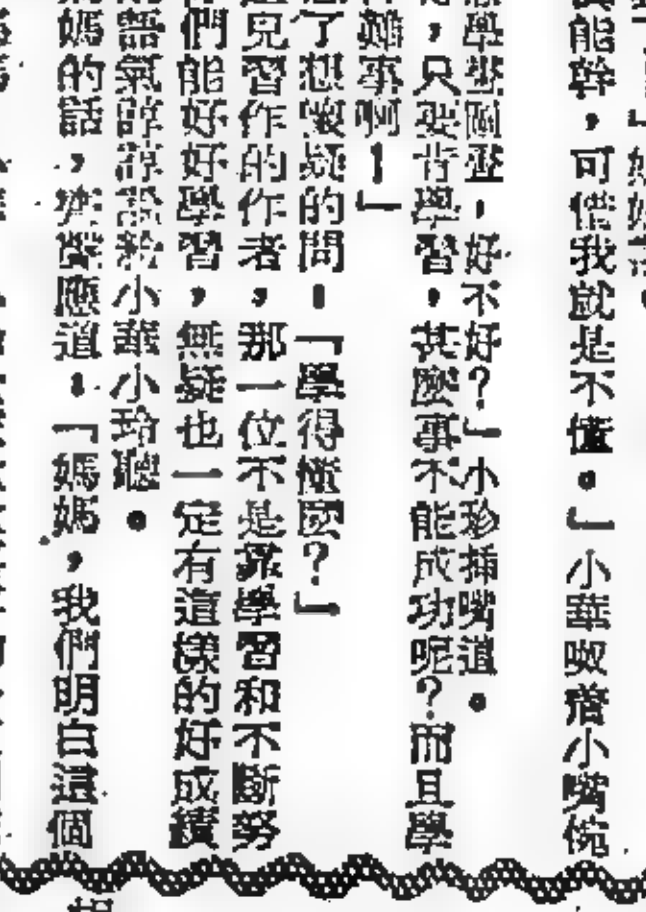 媽好
能幹,可惜我就是不懂。」小華呶着小嘴惋
學學圖畫,好不好?」小珍插嘴道。
,只要肯學習,甚麼事不能成功呢?而且學
雜事啊!」
了想懷疑的問:「學得懂嗎?」
兒習作的作者,那一位不是靠學習和不斷努
們能好好學習,無疑也一定有這樣的好成績
語氣諄諄說給小華小玲聽。
媽的話,齊聲應道:「媽媽,我們明白這個